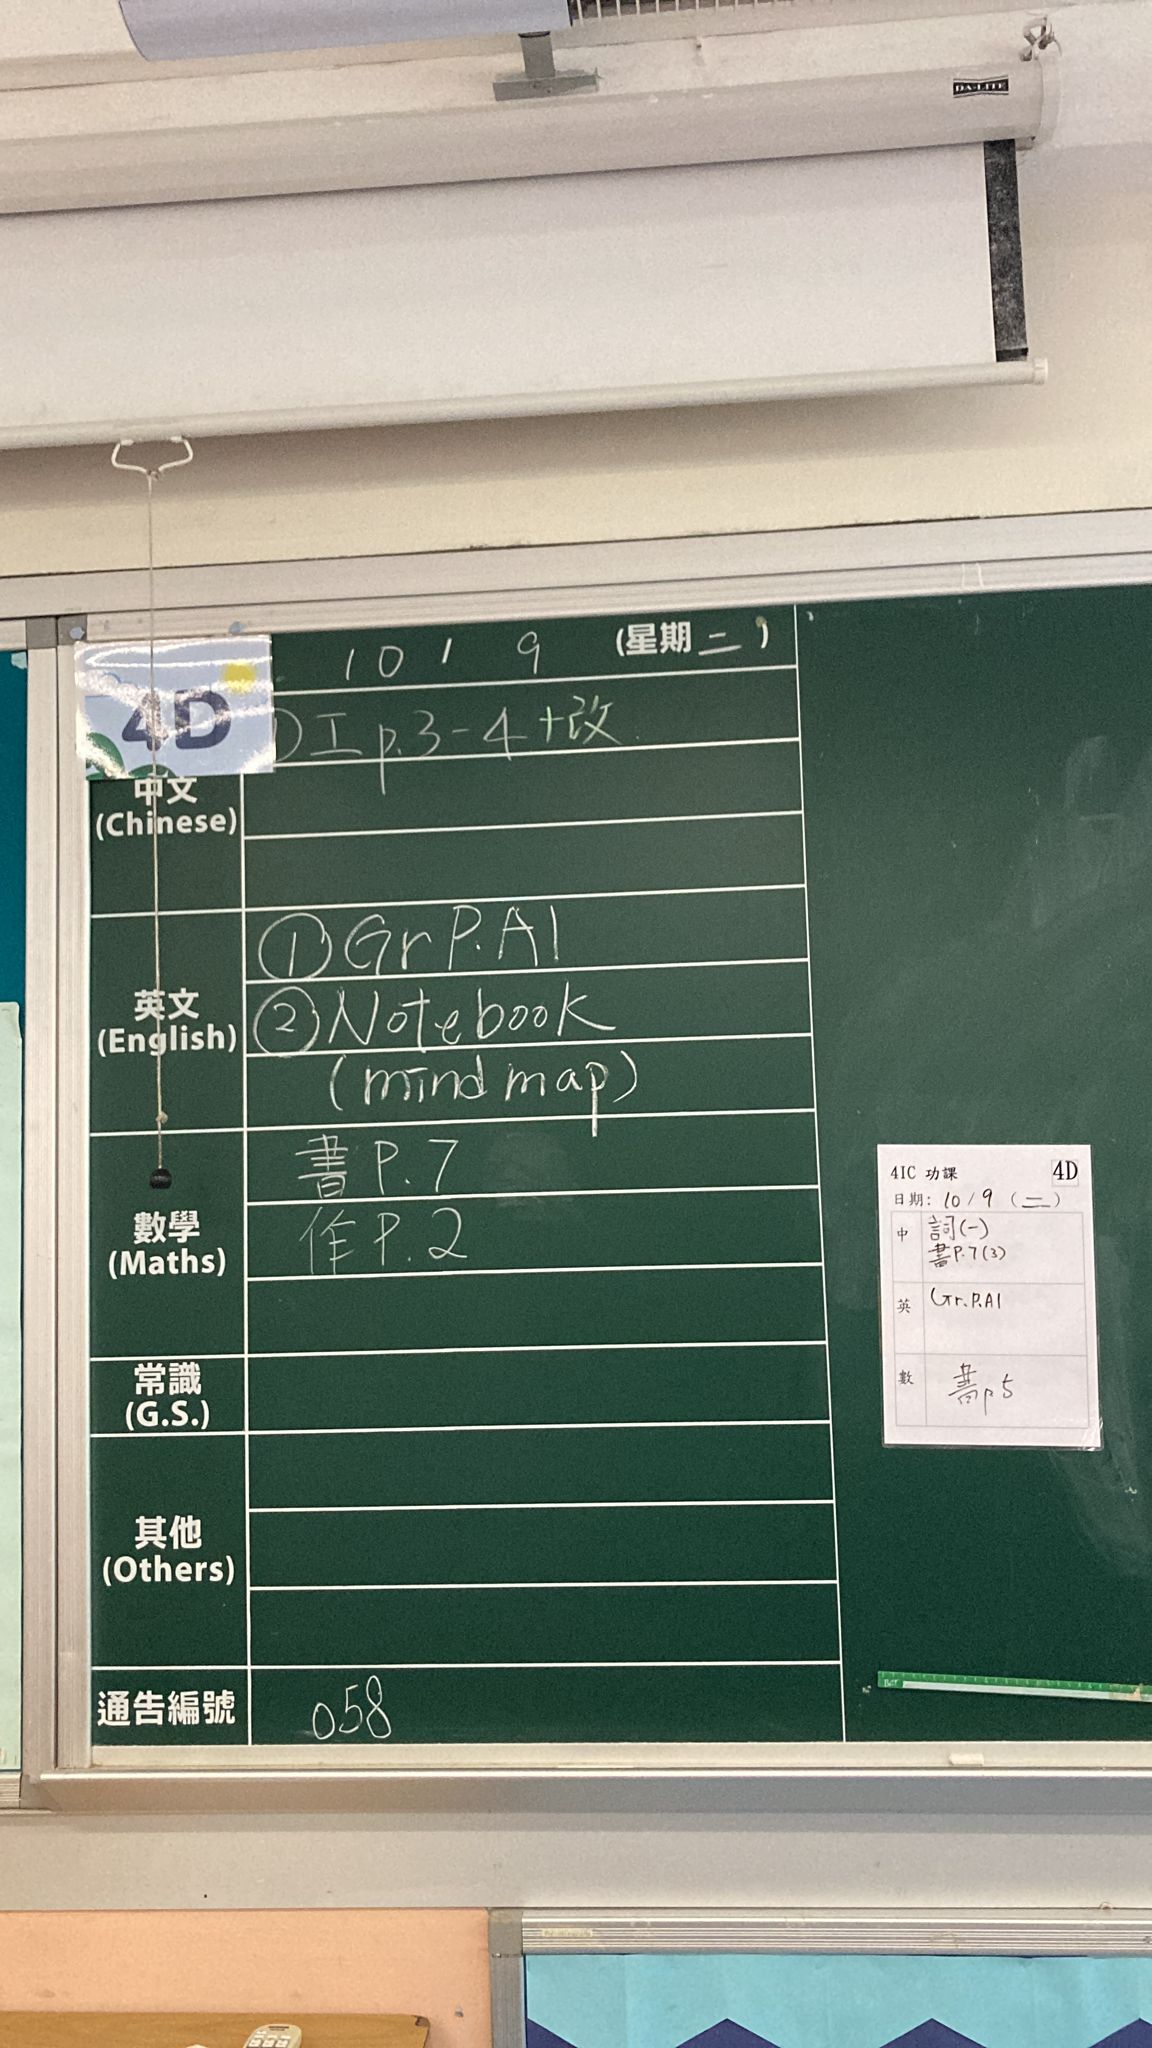 DA-LITE
4D
10 / 9 (星期二)
工 p.3-4+改
中文
(Chinese)
英文
(English)
①Gr P.A1
②Notebook
(mind map)
數學
(Maths)
書 P.7
作 P.2
常識
(G.S.)
其他
(Others)
通告編號
058
4IC 功課 4D
日期: 10/9 (二)
中
詞(一)
書P.7(3)
英
Gr.P.A1
數
書p5